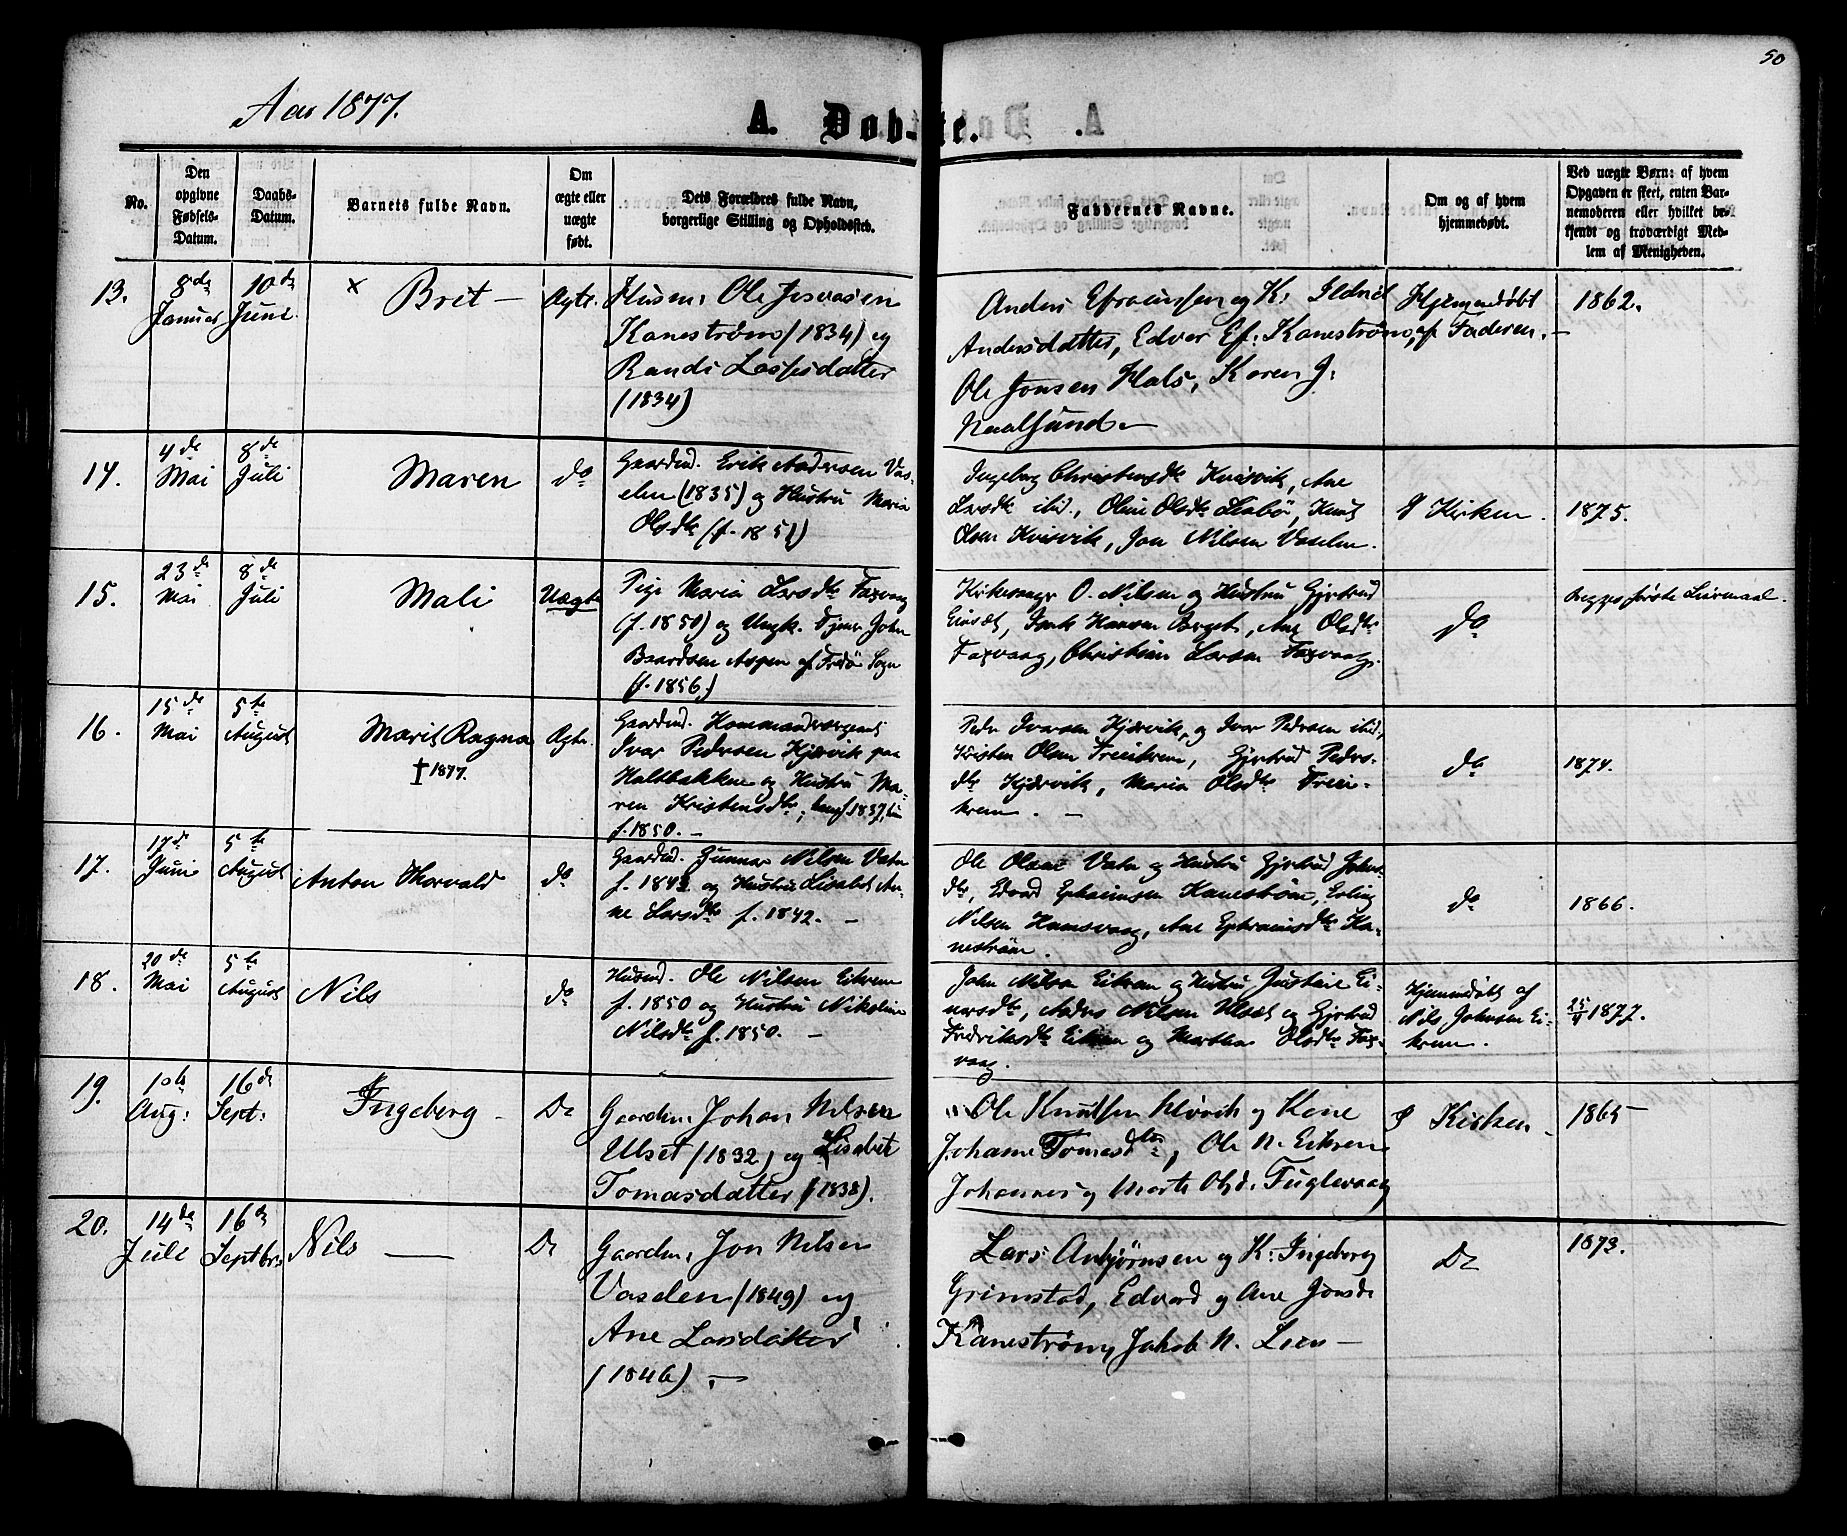 50
Aar 1877.
A. Døb-te.
No.
Den opgivne Fødsels-Datum.
Daabs-Datum.
Barnets fulde Navn.
Om ægte eller uægte født.
Dets Forældres fulde Navn, borgerlige Stilling og Opholdssted.
Faddernes Navne.
Om og af hvem hjemmedøbt.
Ved uægte Børn: af hvem Opgaven er skeet, enten Barnemoderen eller hvilket bekjendt og troværdigt Medlem af Menigheden.
13.
8de Januar
10de Juni
× Brit —
Ægte.
Husm: Ole
Kanestrøm (1834) og
Randi Lassesdatter
(1834)
Anders Efraimsen og K: Ildrid
Andersdatter, Edvar Ef: Kanestrøm,
Ole Jonsen Hals, Karen J:
Naalsund. —
Hjemmedøbt
af Faderen. —
1862.
14.
4de Mai
8de Juli
Maren
do
Gaardmd. Erik Andersen Vas-
elen (1835) og Hustru Maria
Olsdtr (f. 1851)
Ingeborg Christensdtr Kvisvik, Ane
Larsdtr ibid., Oline Olsdtr Leabø, Knut
Olsen Kvisvik, Jon Nilsen Vaselen.
I Kirken.
1875.
15.
23de Mai
8de Juli
Mali
Uægte
Pige Maria Larsdtr Faxvaag
(f. 1850) og Ungk. Tjener John
Baardsen Aspen af Fredø Sogn
(f. 1856.)
Kirkesanger O. Nilsen og Hustru Gjertrud
Einsæt, Hansen Berget, Ane Olsdtr
Faxvaag, Christian Larsen Faxvaag.
do
Begges første Leiermaal.
16.
15de Mai
5te August
Marit Ragna
† 1877.
Ægte.
Gaardmd. Kommandersergent
Ivar Pedersen Kjørvik paa
Haltbakken og Hustru Ma-
ren Kristensdtr; han f. 1837, hun
f. 1850. —
Peder Ivarsen Kjørvik, og Ivar Pedersen ibid,
Kristen Olsen Freikrem, Gjertrud Peders-
dtr Kjørvik, Maria Olsdtr Frei-
krem. —
do
1874.
17.
17de Juni
5te August
Anton Thorvald
do
Gaardmd. Gunnar Nilsen Vatn
f. 1842 og Hustru Lisabet An-
ne Larsdtr f. 1842. —
Ole Olsen Vatn og Hustru Gjertrud Johns-
dtr, Edvard Ephraimsen Kanestrøm, Erling
Nilsen Hamsvaag, Ane Ephraimsdtr Ka-
nestrøm.
do
1866.
18.
20de Mai
5te August
Nils
do
Husmd. Ole Nilsen Eikrem
f. 1850 og Hustru Nikoline
Nilsdtr f. 1850. —
John Nilsen Eikrem og Hustru Gjertine Ei-
narsdtr, Anders Nilsen Ulset og Gjertrud
Fredriksdtr Eikrem og Martha Olsdtr Fax-
vaag.
Hjemmedøbt af
Nils Johnsen Ei-
krem.
25/4 1877.
19.
10de Aug:
16de Sept:
Ingeborg —
Do
Gaardm: Johan Nilsen
Ulset (1832) og Lisabet
Tomasdatter (1838).
Ole Knutsen og Kone
Johanne Tomasdtr, Ole N. Eikrem
Johannes og Marte Olsd. Fuglevaag
I Kirken —
1865
20.
14de Juli
16de Septbr:
Nils —
Do
Gaardm: Jon Nilsen
Vaselen (1849) og
Ane Larsdatter
(1846). —
Lars Anbjørnsen og K: Ingeborg
Grimstad, Edvard og Ane Jonsdr
Kanestrøm, Jakob N. Lien —
Do
1873.